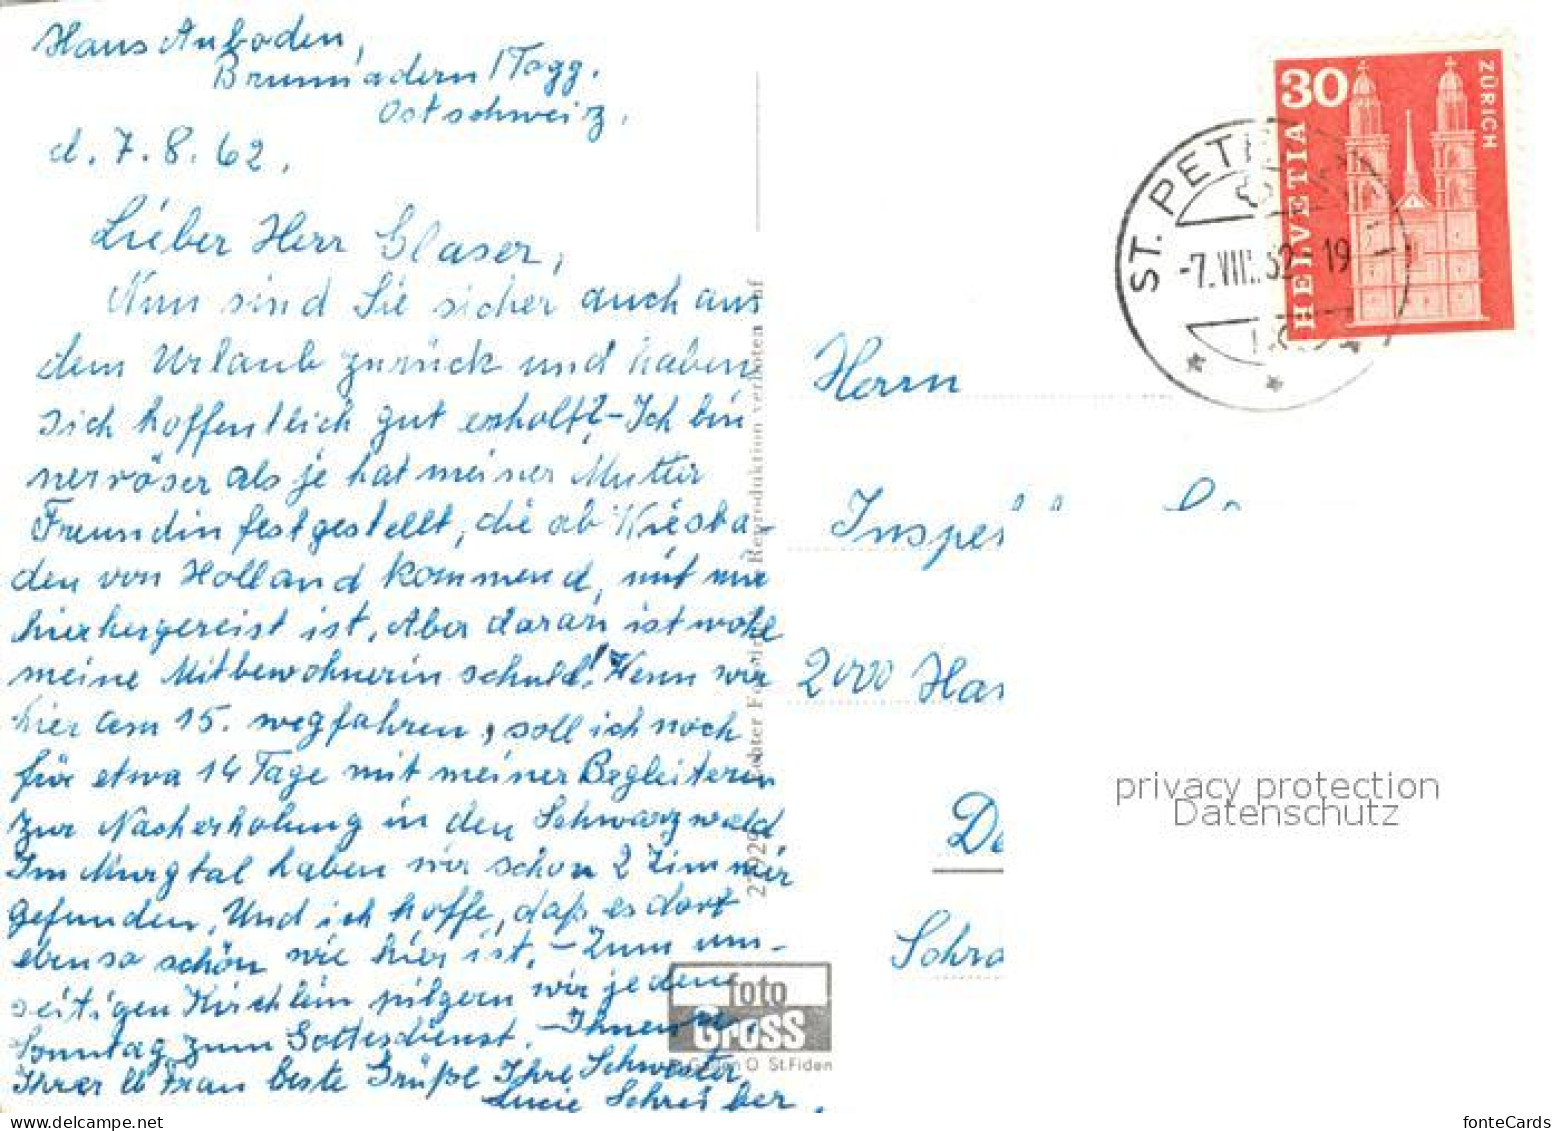 Haus Anboden,
Brunnadern / Togg.
Ostschweiz.
d. 7.8.62.
Lieber Herr Glaser,
Nun sind Sie sicher auch aus
dem Urlaub zurück und haben
sich hoffentlich gut erholt? – Ich bin
nervöser als je hat meiner Mutter
Freundin festgestellt, die ab Wiesba-
den von Holland kommend, mit mir
hierhergereist ist. Aber daran ist wohl
meine Mitbewohnerin schuld! Wenn wir
hier am 15. wegfahren, soll ich noch
für etwa 14 Tage mit meiner Begleiterin
zur Nacherholung in den Schwarzwald
Im Murgtal haben wir schon 2 Zimmer
gefunden. Und ich hoffe, daß es dort
ebenso schön wie hier ist. – Zum um-
seitigen Kirchlein pilgern wir jeden
Sonntag zum Gottesdienst. – Ihnen u.
Ihrer lb Frau beste Grüße Ihre Schwester
Lucie Schreiber.
Echter Reproduktion verboten
foto
Gross
St.Fiden
30
HELVETIA
ZÜRICH
ST. PETE
-7.VIII.62 - 19
Herrn
Inspe
2000 Ha
De
Schra
privacy protection
Datenschutz
fonteCards